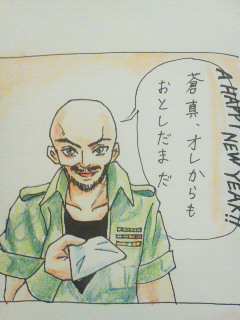 A HAPPY NEW YEAR!!
蒼真、オレからも
おとしだまだ